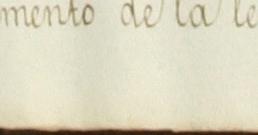 mento de la le